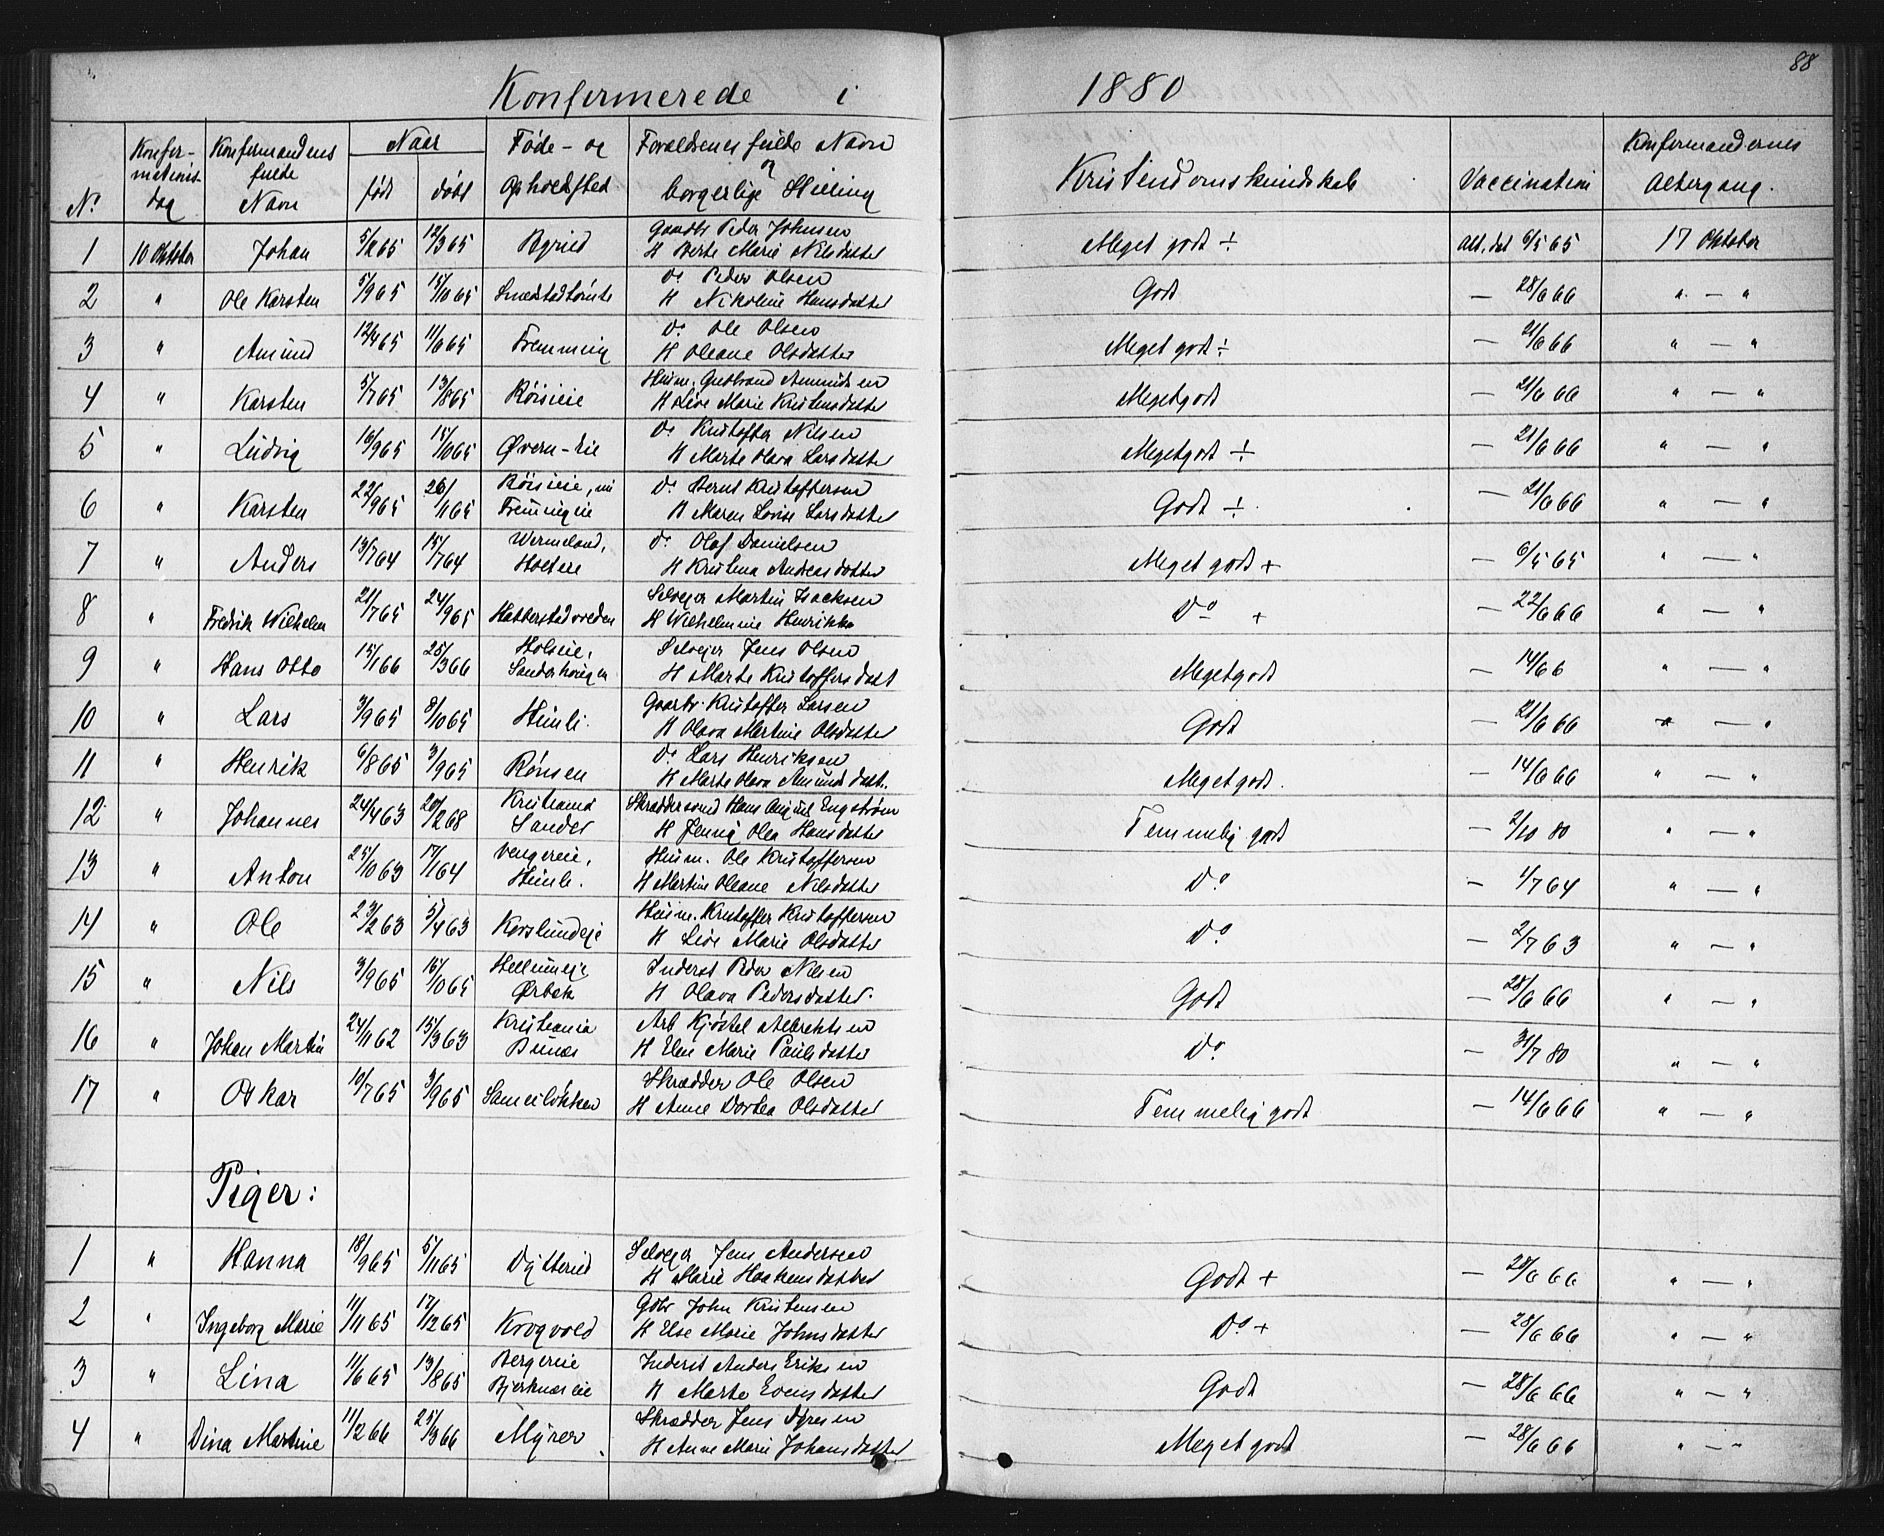 88
Konfirmerede i 1880
No. Konfirmationsdag Konfirmandens fulde Navn Naar født døbt Føde- og Opholdssted Forældrenes fulde Navn og borgerlige Stilling Kristendomskundskab Vaccination Konfirmandernes Altergang.
1 10 Oktober Johan 12/3 65 Gaardbr Peder Johnsen H Berte Marie Nilsdatter Meget godt ÷ Att. dat 6/5 65 17 Oktober
2 " Ole Karsten 5/9 65 15/10 65 Do Peder Olsen H Nikoline Hansdatter Godt — 28/6 66 " — "
3 " Amund 12/4 65 11/6 65 Fremming Do Ole Olsen H Oleane Olsdatter Meget godt ÷ — 21/6 66 " — "
4 " Karsten 5/7 65 13/8 65 Röisieie Husm. Gudbrand Amundsen H Lise Marie Kristensdatter Megetgodt — 21/6 66 " — "
5 " Ludvig 16/9 65 15/10 65 Øvern-eie Do Kristoffer Nilsen H Marte Olava Larsdatter Megetgodt ÷ — 21/6 66 " — "
6 " Karsten 22/9 65 26/11 65 Röisieie, nu Fremingeie Do Bernt Kristoffersen H Maren Lovise Larsdatter Godt ÷ — 21/6 66 " — "
7 " Anders 13/7 64 15/7 64 Wermeland, Holteie Do Olof Danielsen H Kristina Andreasdatter Meget godt + — 6/5 65 " — "
8 " Fredrik Wilhelm 21/7 65 24/9 65 Selvejer Martin Isacksen H Wilhelmine Henrikke Do + — 22/6 66 " — "
9 " Hans Otto 15/1 66 25/3 66 Holseie, Selvejer Jens Olsen H Marte Kristoffersdatt Megetgodt — 14/6 6 " — "
10 " Lars 3/9 65 8/10 65 Himli. Gaarbr. Kristoffer Larsen H Olava Martine Olsdatter Godt — 21/6 66 " — "
11 " Henrik 6/8 65 3/9 65 Rönsen Do Lars Henriksen H Marte Olava Amundsdatt. Meget godt. — 14/6 66 " — "
12 " Johannes 24/4 63 20/2 68 Kristiania Sander Skræddersvend Hans August Engstrøm H Jenny Olea Hansdatter Temmelig godt — 2/10 80 " — "
13 " Anton 25/10 63 17/1 64 Vengereie, Himli. Husm. Ole Kristoffersen H Martine Oleane Nilsdatter Do — 1/7 64 " — "
14 " Ole 23/2 63 5/4 63 Korslundeje Husm. Kristoffer Kristoffersen H Lise Marie Olsdatter Do — 2/7 63 " — "
15 " Nils 3/9 65 15/10 65 Hellumeje Ørbek Inderst Peder Nilsen H Olava Pedersdatter. Godt — 28/6 66 " — "
16 " Johan Martin 24/11 62 15/3 63 Kristiania Bunæs Arb Kjöstel Albrektsen H Eline Marie Paulsdatter Do — 31/7 80 " — "
17 " Oskar 10/7 65 3/9 65 Skrædder Ole Olsen H Anne Dortea Olsdatter Temmelig godt — 14/6 66 " — "
Piger:
1 " Hanna 18/9 65 5/11 65 Dytterud Selvejer Jens Andersen H Marie Haakensdatter Godt + — 28/6 66 " — "
2 " Ingeborg Marie 11/11 65 17/12 65 Krogvold Gdbr John Kristensen H Else Marie Johnsdatter Do + — 28/6 66 " — "
3 " Lina 11/6 65 13/8 65 Bergereie Bjerknæseie Inderst Anders Eriksen H Marte Evensdatter Godt — 28/6 66 " — "
4 " Dina Martine 11/2 66 25/3 66 Myrer Skrædder Jens Syvesen H Anne Marie Johansdatter Meget godt — 28/6 66 " — "